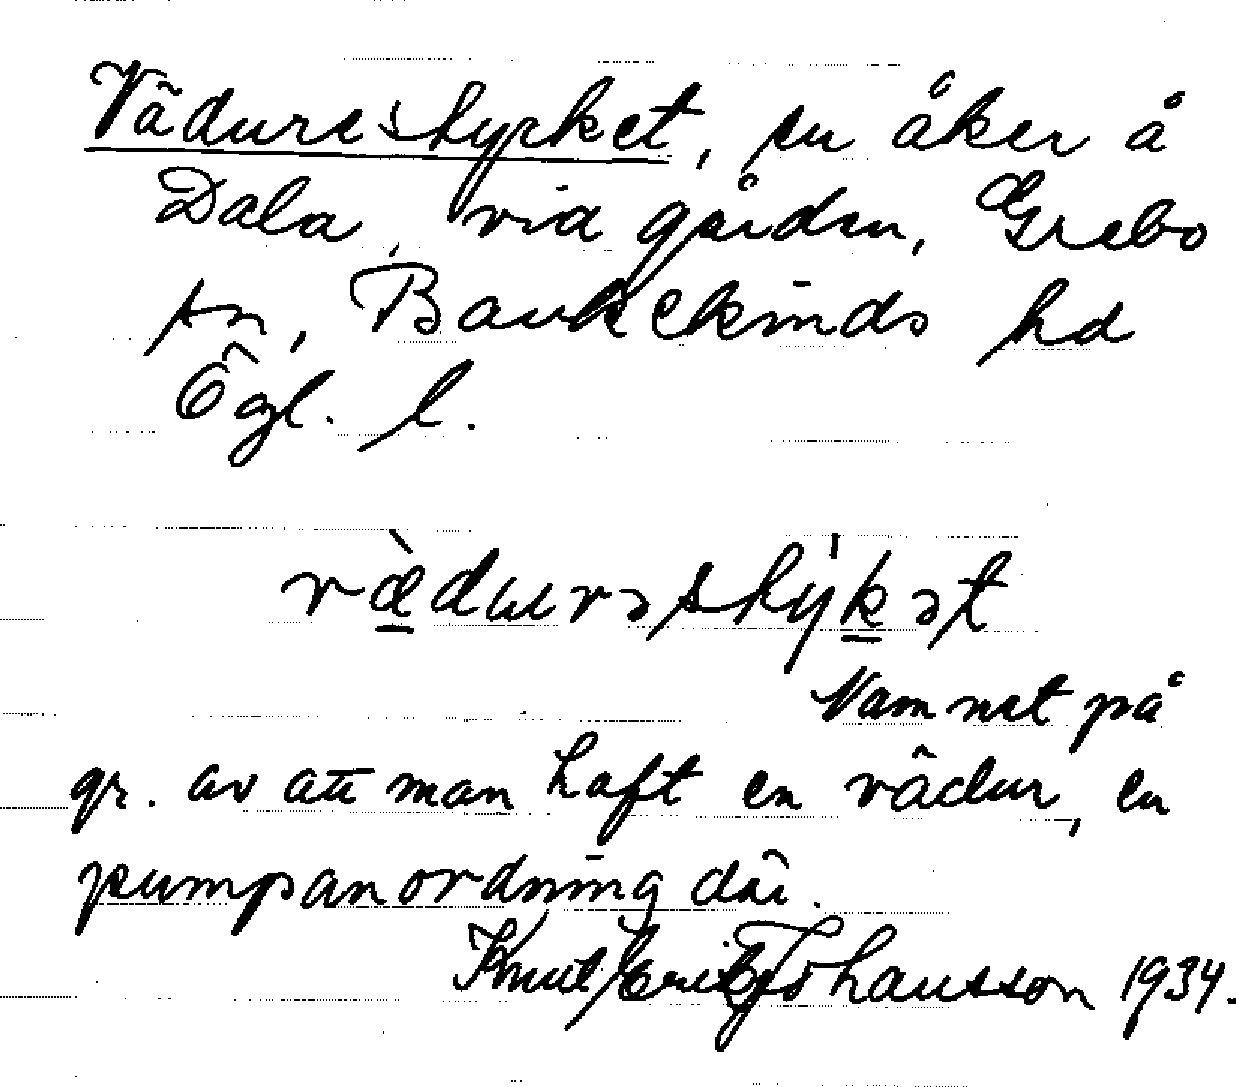 Vädursstycket, en åker å
Dala, vid gården, Grebo
sn, Bankekinds hd
Ögl. l.
vædursstýkət
Namnet på
gr. av att man haft en vädur, en
pumpanordning där.
Knut Erik Johansson 1934.